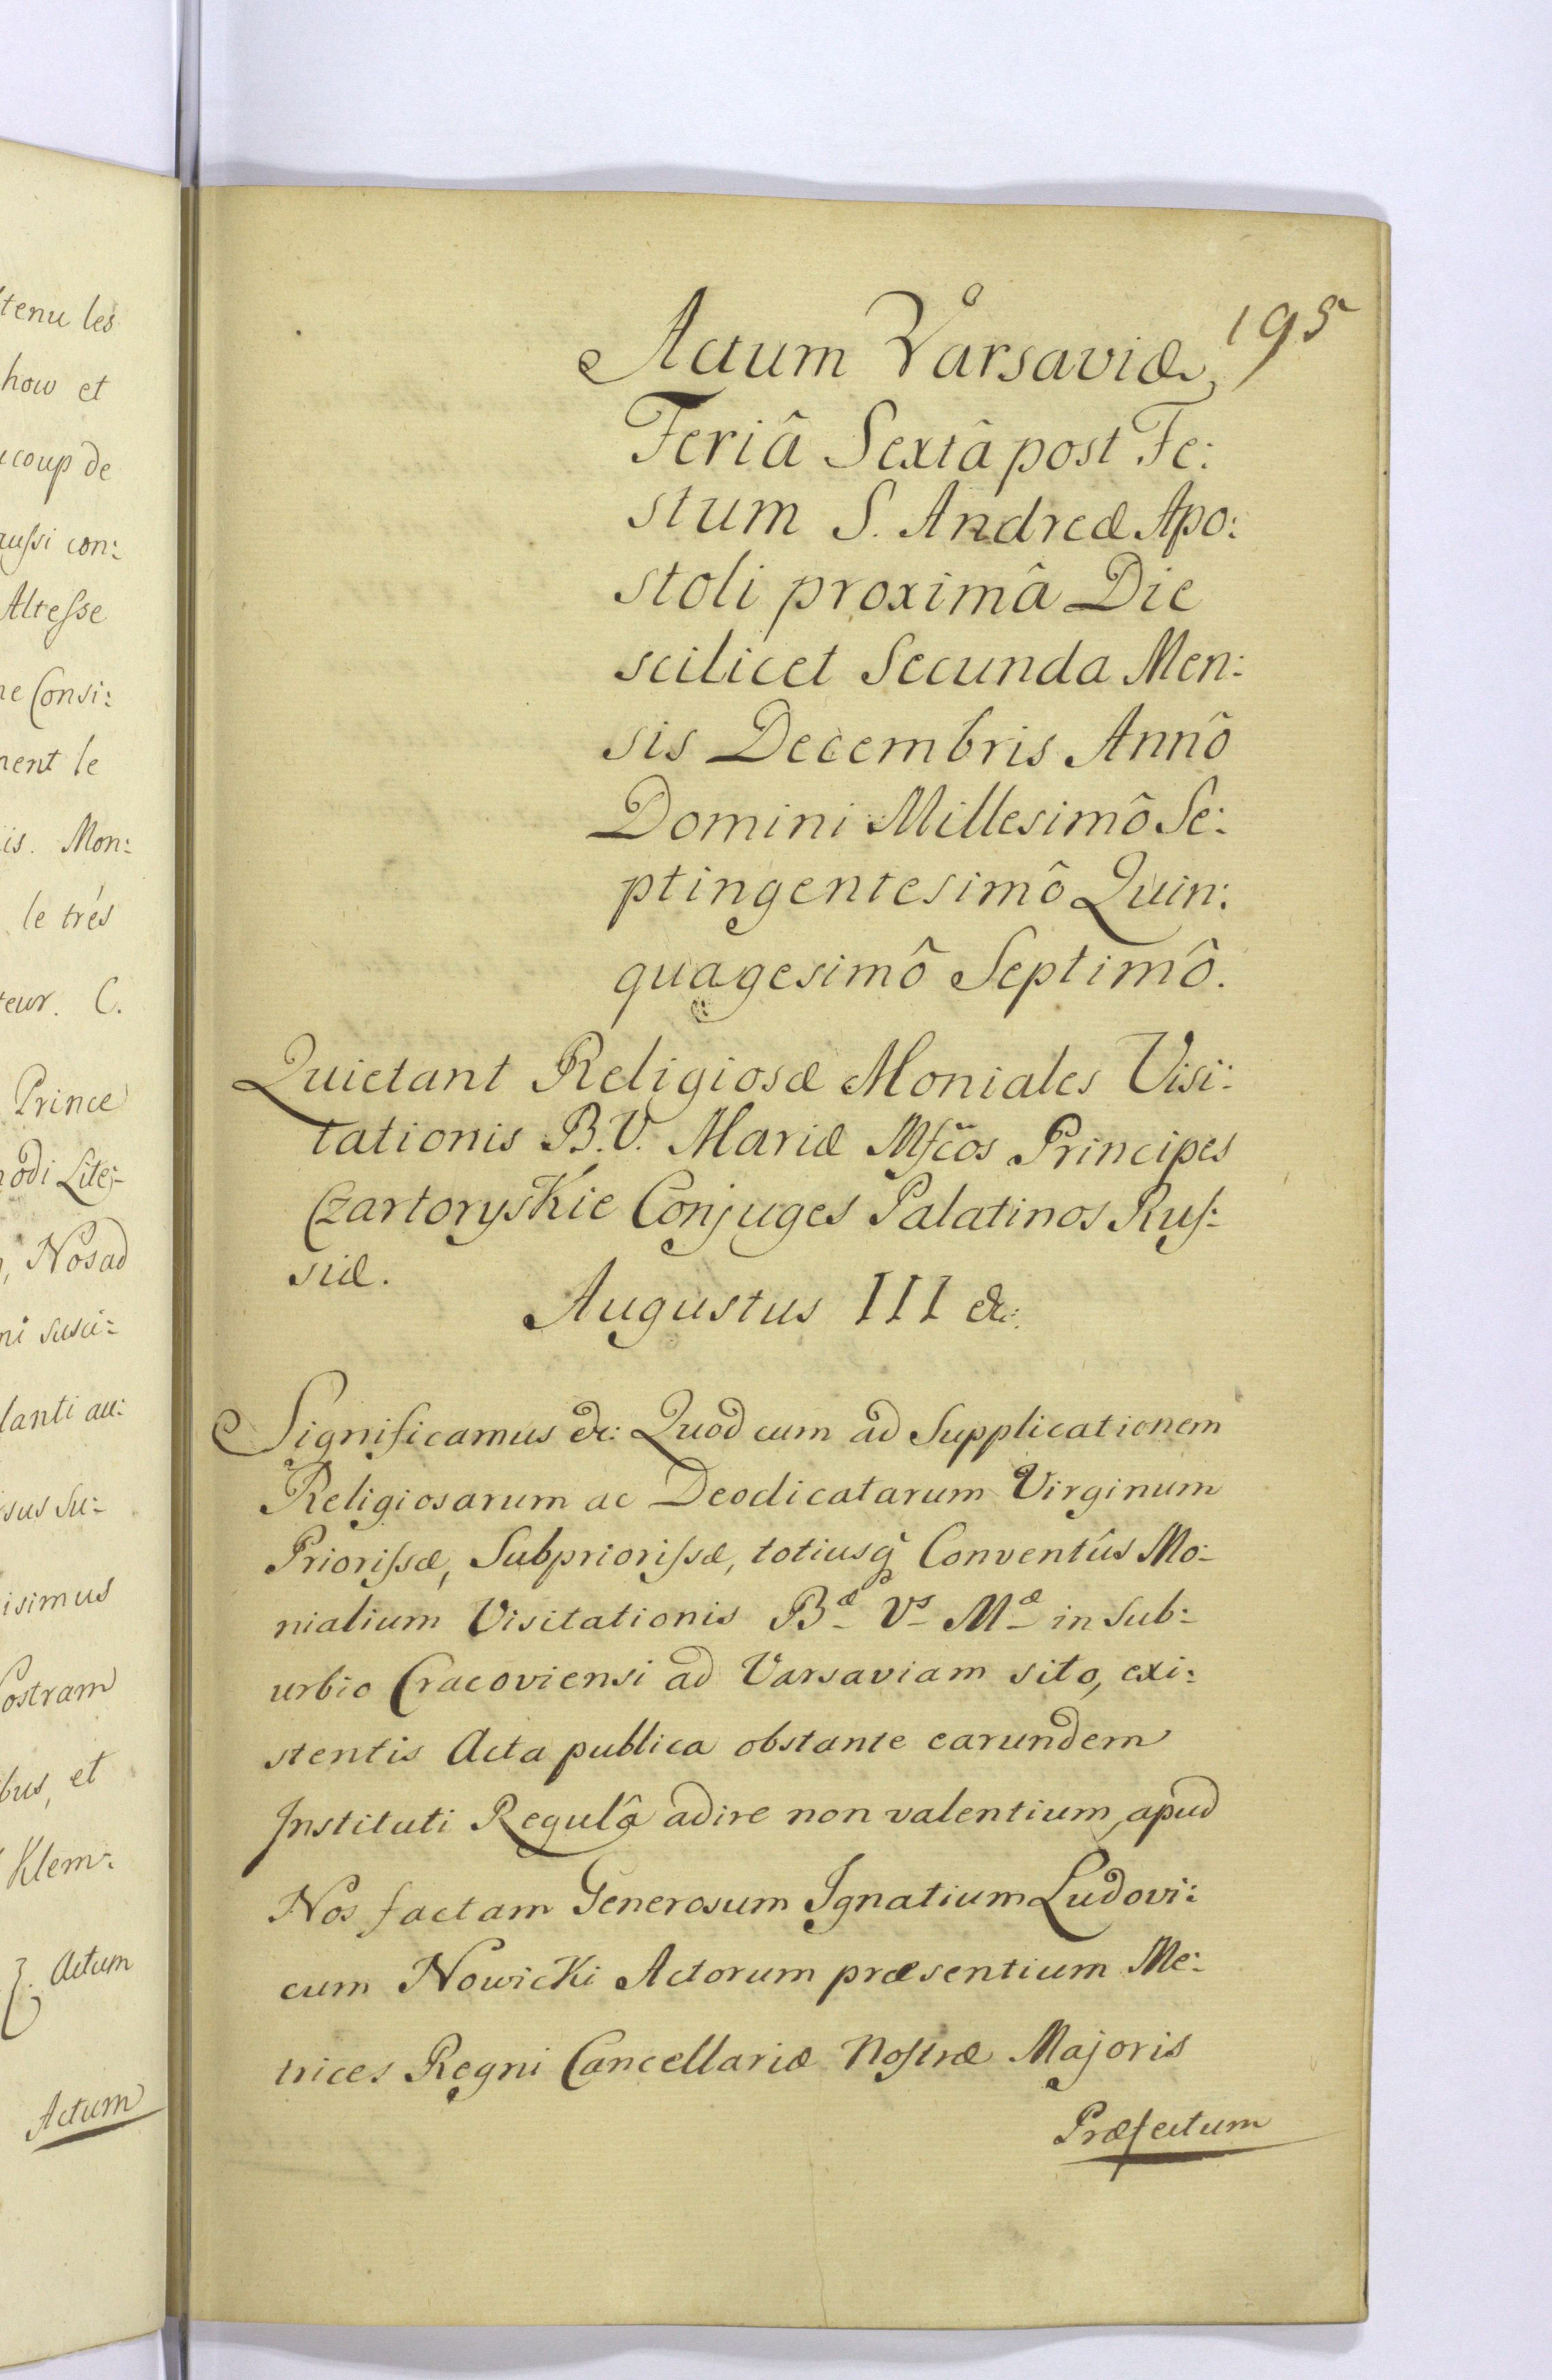 tenu les
how et
coup de
aussi con:
Altesse
ne Consi:
ment le
is. Mon:
le trés
teur. C.
Prince
modi Lite:
, Nos ad
ni susci:
lanti au:
sus Su:
isimus
ostram
bus, et
Klem:
Actum
Actum
195
Actum Varsaviæ,
Feriâ Sextâ post Fe:
stum S. Andreæ Apo:
stoli proximâ Die
scilicet Secunda Men:
sis Decembris Annô
Domini Millesimô Se:
ptingentesimô Quin:
quagesimô Septimô.
Quietant Religiosæ Moniales Visi:
tationis B.V. Mariæ Mfcos Principes
Czartoryskie Conjuges Palatinos Rus:
siæ.
Augustus III &c:
Significamus &c: Quod cum ad Supplicationem
Religiosarum ac Deodicatarum Virginum
Priorissæ, Subpriorissæ, totiusq̃ Conventûs Mo:
nialium Visitationis Bæ Vs Mæ in Sub:
urbio Cracoviensi ad Varsaviam sito, exi:
stentis Acta publica obstante earundem
Instituti Regulâ adire non valentium, apud
Nos factam Generosum Ignatium Ludovi:
cum Nowicki Actorum præsentium Me:
trices Regni Cancellariæ Nostræ Majoris
Præfectum